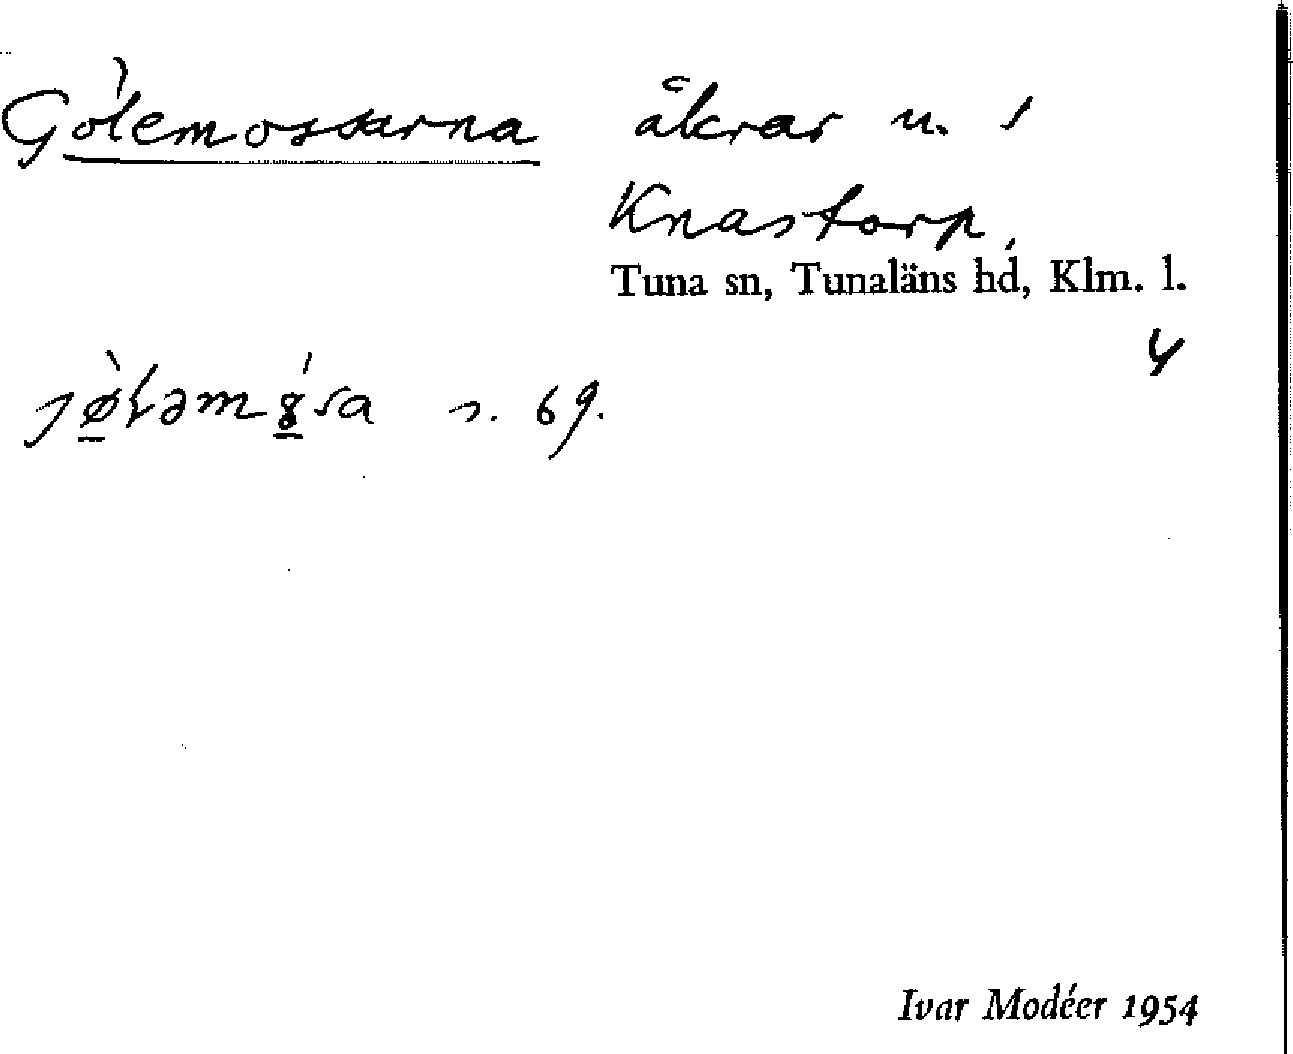 Gölemossarna åkrar u. 1
Knastorp,
Tuna sn, Tunaläns hd, Klm. l.
4
s. 69.
Ivar Modéer 1954